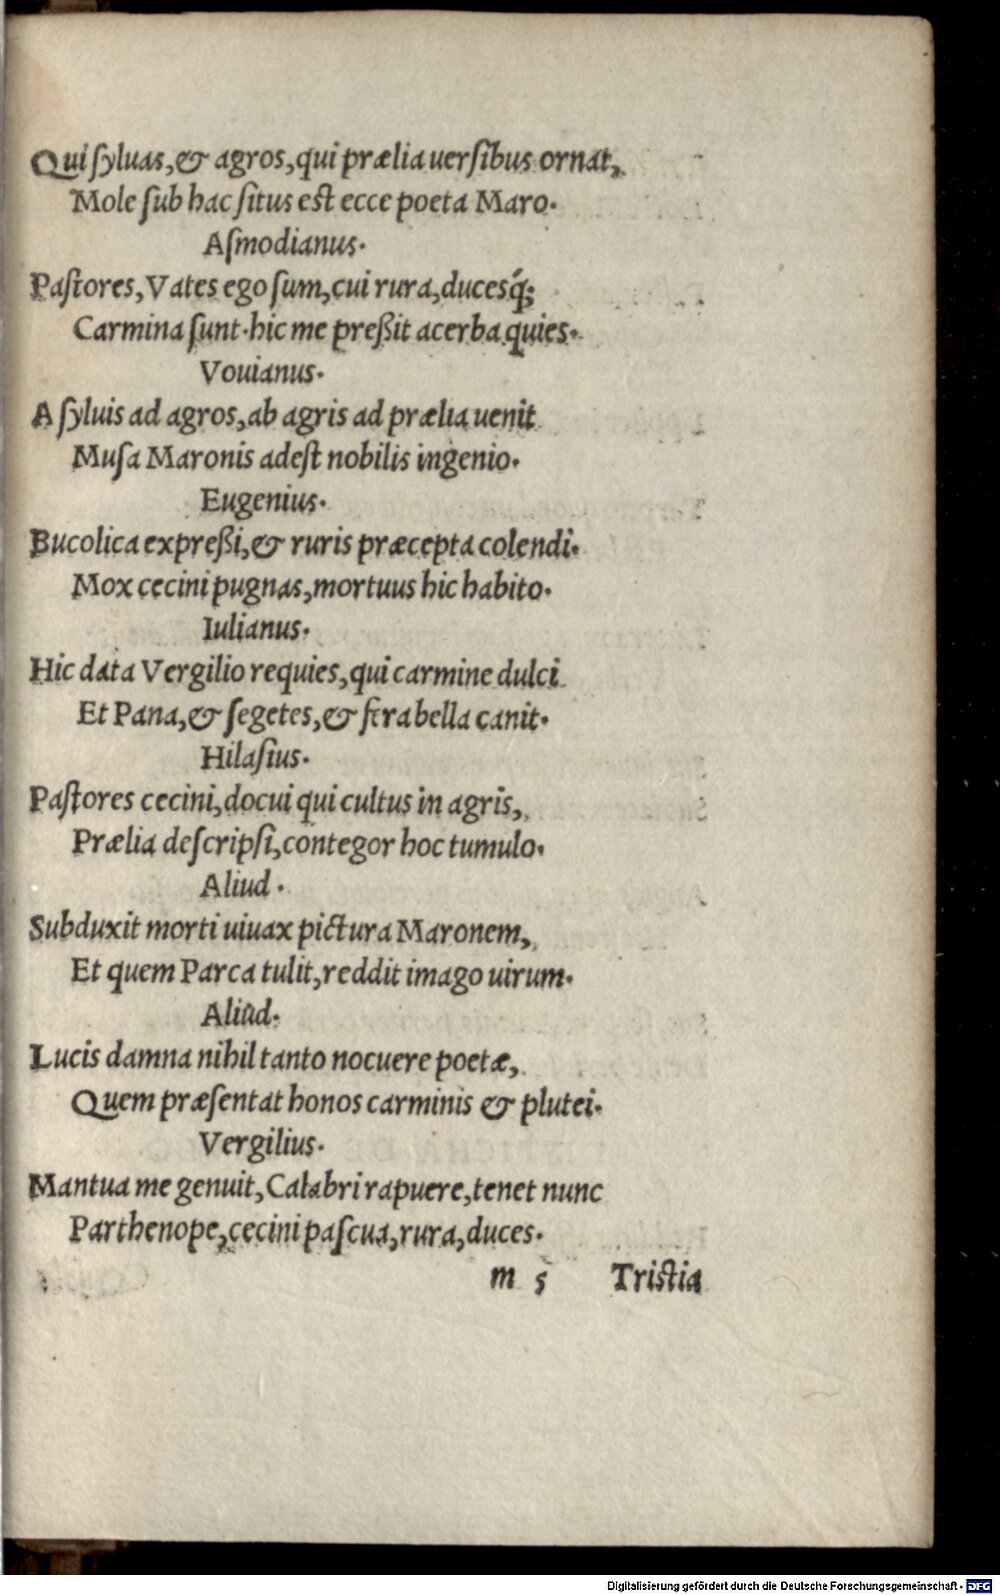 Qui syluas,& agros,qui prælia uersibus ornat,
Mole sub hac situs est ecce poeta Maro.
Asmodianus.
Pastores,Vates ego sum,cui rura,ducesq́;
Carmina sunt.hic me preßit acerba quies.
Vouianus.
A syluis ad agros,ab agris ad prælia uenit
Musa Maronis adest nobilis ingenio.
Eugenius.
Bucolica expreßi,& ruris præcepta colendi.
Mox cecini pugnas,mortuus hic habito.
Iulianus.
Hic data Vergilio requies,qui carmine dulci
Et Pana,& segetes,& fera bella canit.
Hilasius.
Pastores cecini,docui qui cultus in agris,
Prælia descripsi,contegor hoc tumulo.
Aliud.
Subduxit morti uiuax pictura Maronem,
Et quem Parca tulit,reddit imago uirum.
Aliud.
Lucis damna nihil tanto nocuere poetæ,
Quem præsentat honos carminis & plutei.
Vergilius.
Mantua me genuit,Calabri rapuere,tenet nunc
Parthenope,cecini pascua,rura,duces.
m 5 Tristia
Digitalisierung gefördert durch die Deutsche Forschungsgemeinschaft - DFG